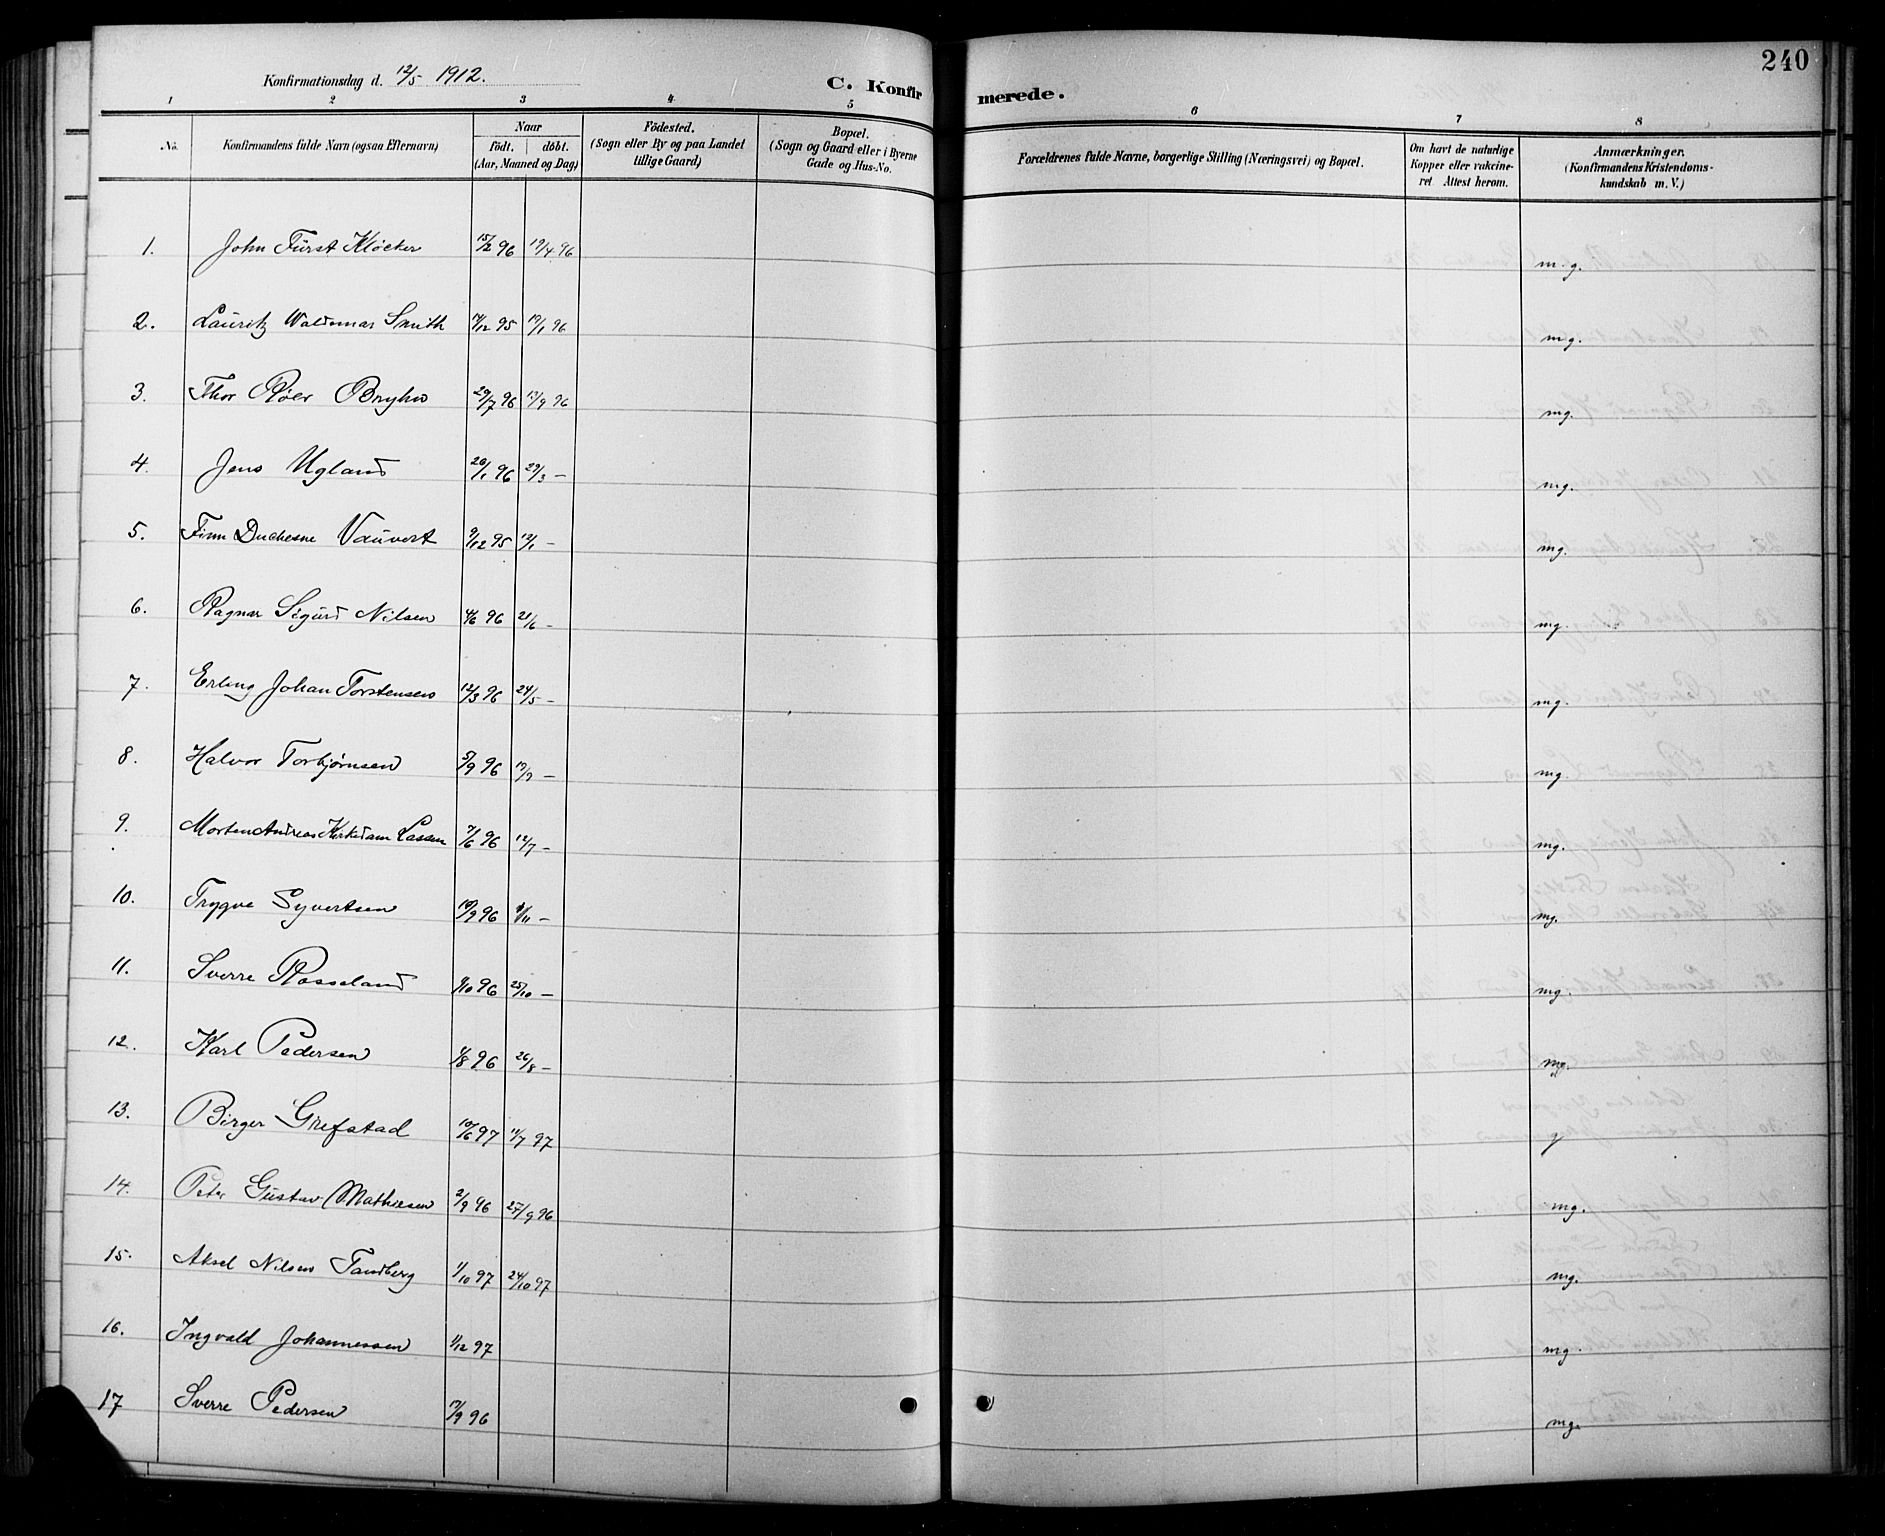 240
Konfirmationsdag d. 12/5 1912.
C. Konfirmerede.
1 2 3 4 5 6 7 8
No.
Konfirmandens fulde Navn (ogsaa Efternavn)
Naar
födt. döbt.
(Aar, Maaned og Dag)
Födested.
(Sogn eller By og paa Landet
tillige Gaard)
Bopæl.
(Sogn og Gaard eller i Byerne
Gade og Hus-No.
Forældrenes fulde Navne, borgerlige Stilling (Næringsvei) og Bopæl.
Om havt de naturlige
Kopper eller vakcine-
ret Attest herom.
Anmærkninger.
(Konfirmandens Kristendoms-
kundskab m. V.)
1. John Fürst Kløcker 15/2 96 19/4 96 m.g.
2. Lauritz Waldemar Smith 14/12 95 19/1 96 mg.
3. Thor Røer Bryhn 29/7 96 13/9 96 mg.
4. Jens Ugland 26/1 96 29/3 — mg.
5. Finn Duchesne Vauvert 9/12 95 12/1 — mg.
6. Ragnar Sigurd Nilsen 4/6 96 21/6 — mg.
7. Erling Johan Torstensen 12/3 96 24/5 — mg.
8. Halvor Torbjørnsen 5/9 96 19/9 — mg.
9. Morten Andreas Kirkedam Lassen 7/6 96 12/7 — mg.
10. Trygve Syvertsen 19/9 96 1/11 — mg.
11. Sverre Rosseland 1/10 96 25/10 — mg.
12. Karl Pedersen 1/8 96 26/8 — mg.
13. Birger Grefstad 10/6 97 11/7 97 g
14. Peter Gustav Mathiesen 2/9 96 27/9 96 mg.
15. Aksel Nilsen Tandberg 1/10 97 24/10 97 mg.
16. Ingvald Johannessen 1/12 97 mg.
17 Sverre Pedersen 17/9 96 mg.